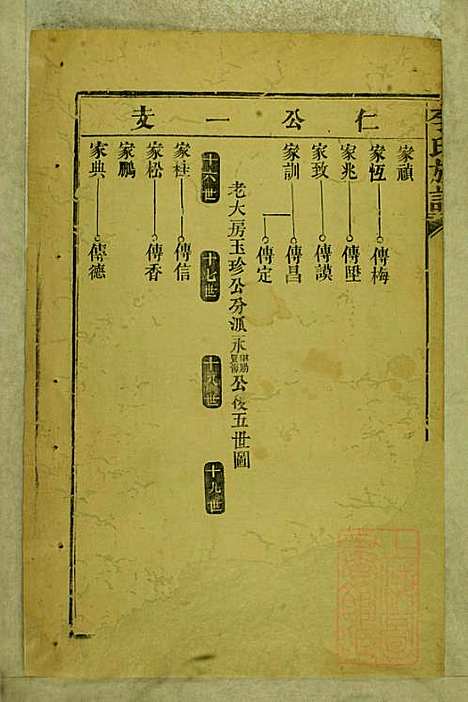 李氏族譜
仁公一支
家頑
家恆 傳梅
家兆 傳陞
家致 傳謨
家訓 傳昌
傳定
老大房玉珍公分派永
公後五世圖
十六世
十七世
十八世
十九世
家桂 傳信
家松 傳香
家鵬
家典 傳德